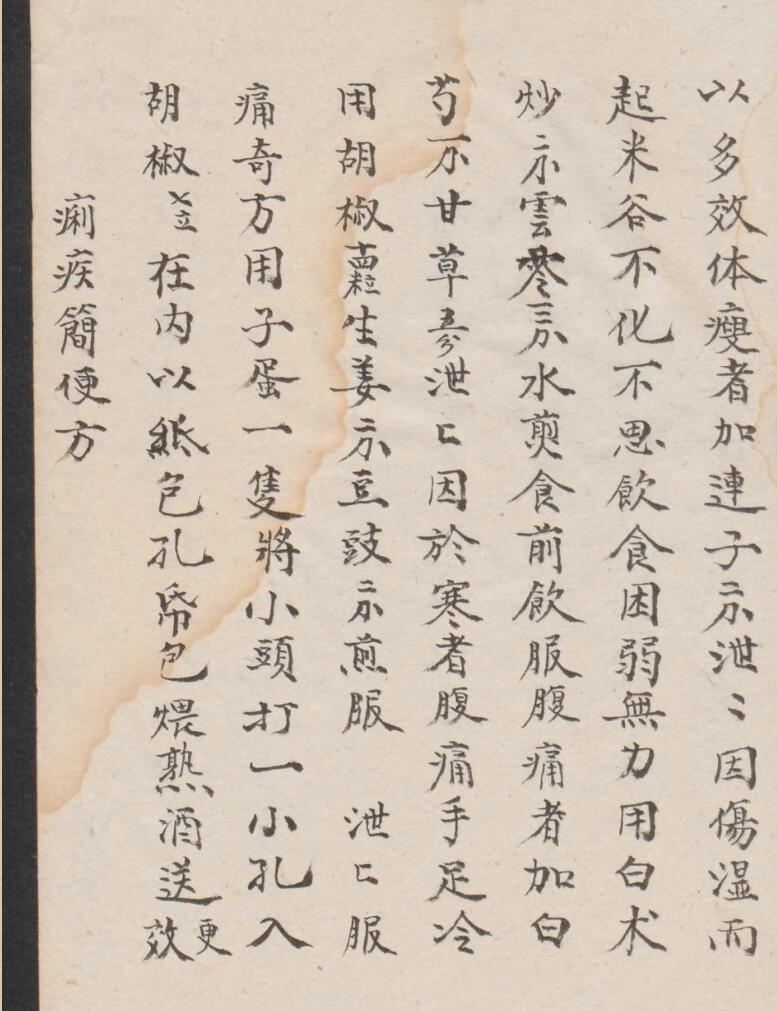 以多效体瘦者加連子二尒泄〻因傷湿而
起米谷不化不思飲食困弱無力用白术
炒二尒雲苓三尒水煎食前飲服腹痛者加白
芍一尒甘草五分泄匕因於寒者腹痛手足冷
用胡椒粒生姜二尒豆豉二尒煎服　泄匕服
痛奇方用子蛋一隻將小頭打一小孔入
胡椒〤立在内以紙包孔帋包煨熟酒送更效
痢疾簡便方